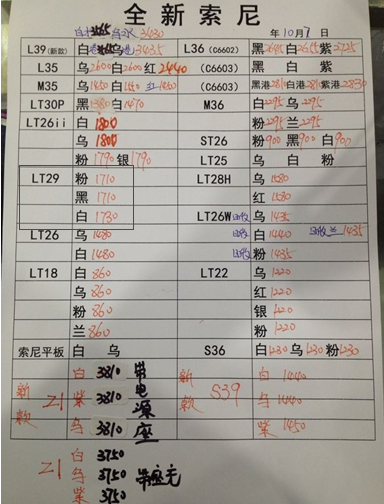 全新索尼
3430
年10月7日
L39(新款) 白 乌 3435 L36(C6602) 黑2615 白2655 紫2725
L35 乌2600 白2600 红2440 (C6603) 黑 白 紫
M35 乌1850 白1850 红1850 (C6603) 黑港2810 白港2810 紫港2830
LT30P 黑1380 白1470 M36 白2295 乌2295
LT26ii 白1800 粉2295 兰2295
乌1800 ST26 粉900 黑900 白900
粉1790 银1790 LT25 乌 白 粉
LT29 粉1710 LT28H 乌1580
黑1710 红1580
白1730 LT26W 回收 乌1435
LT26 乌1480 回收 白1440 回收 兰1435
白1480 回收 粉1435
LT18 白860 LT22 乌1220
乌860 红1220
粉860 银1220
兰860 粉1220
索尼平板 白 乌 S36 白1230 乌1230 粉1230
新款 Z1 白3810 带电源座 新款 S39 白1440
紫3810 乌1440
乌3810 紫1450
Z1 白3750
乌3750
紫3750